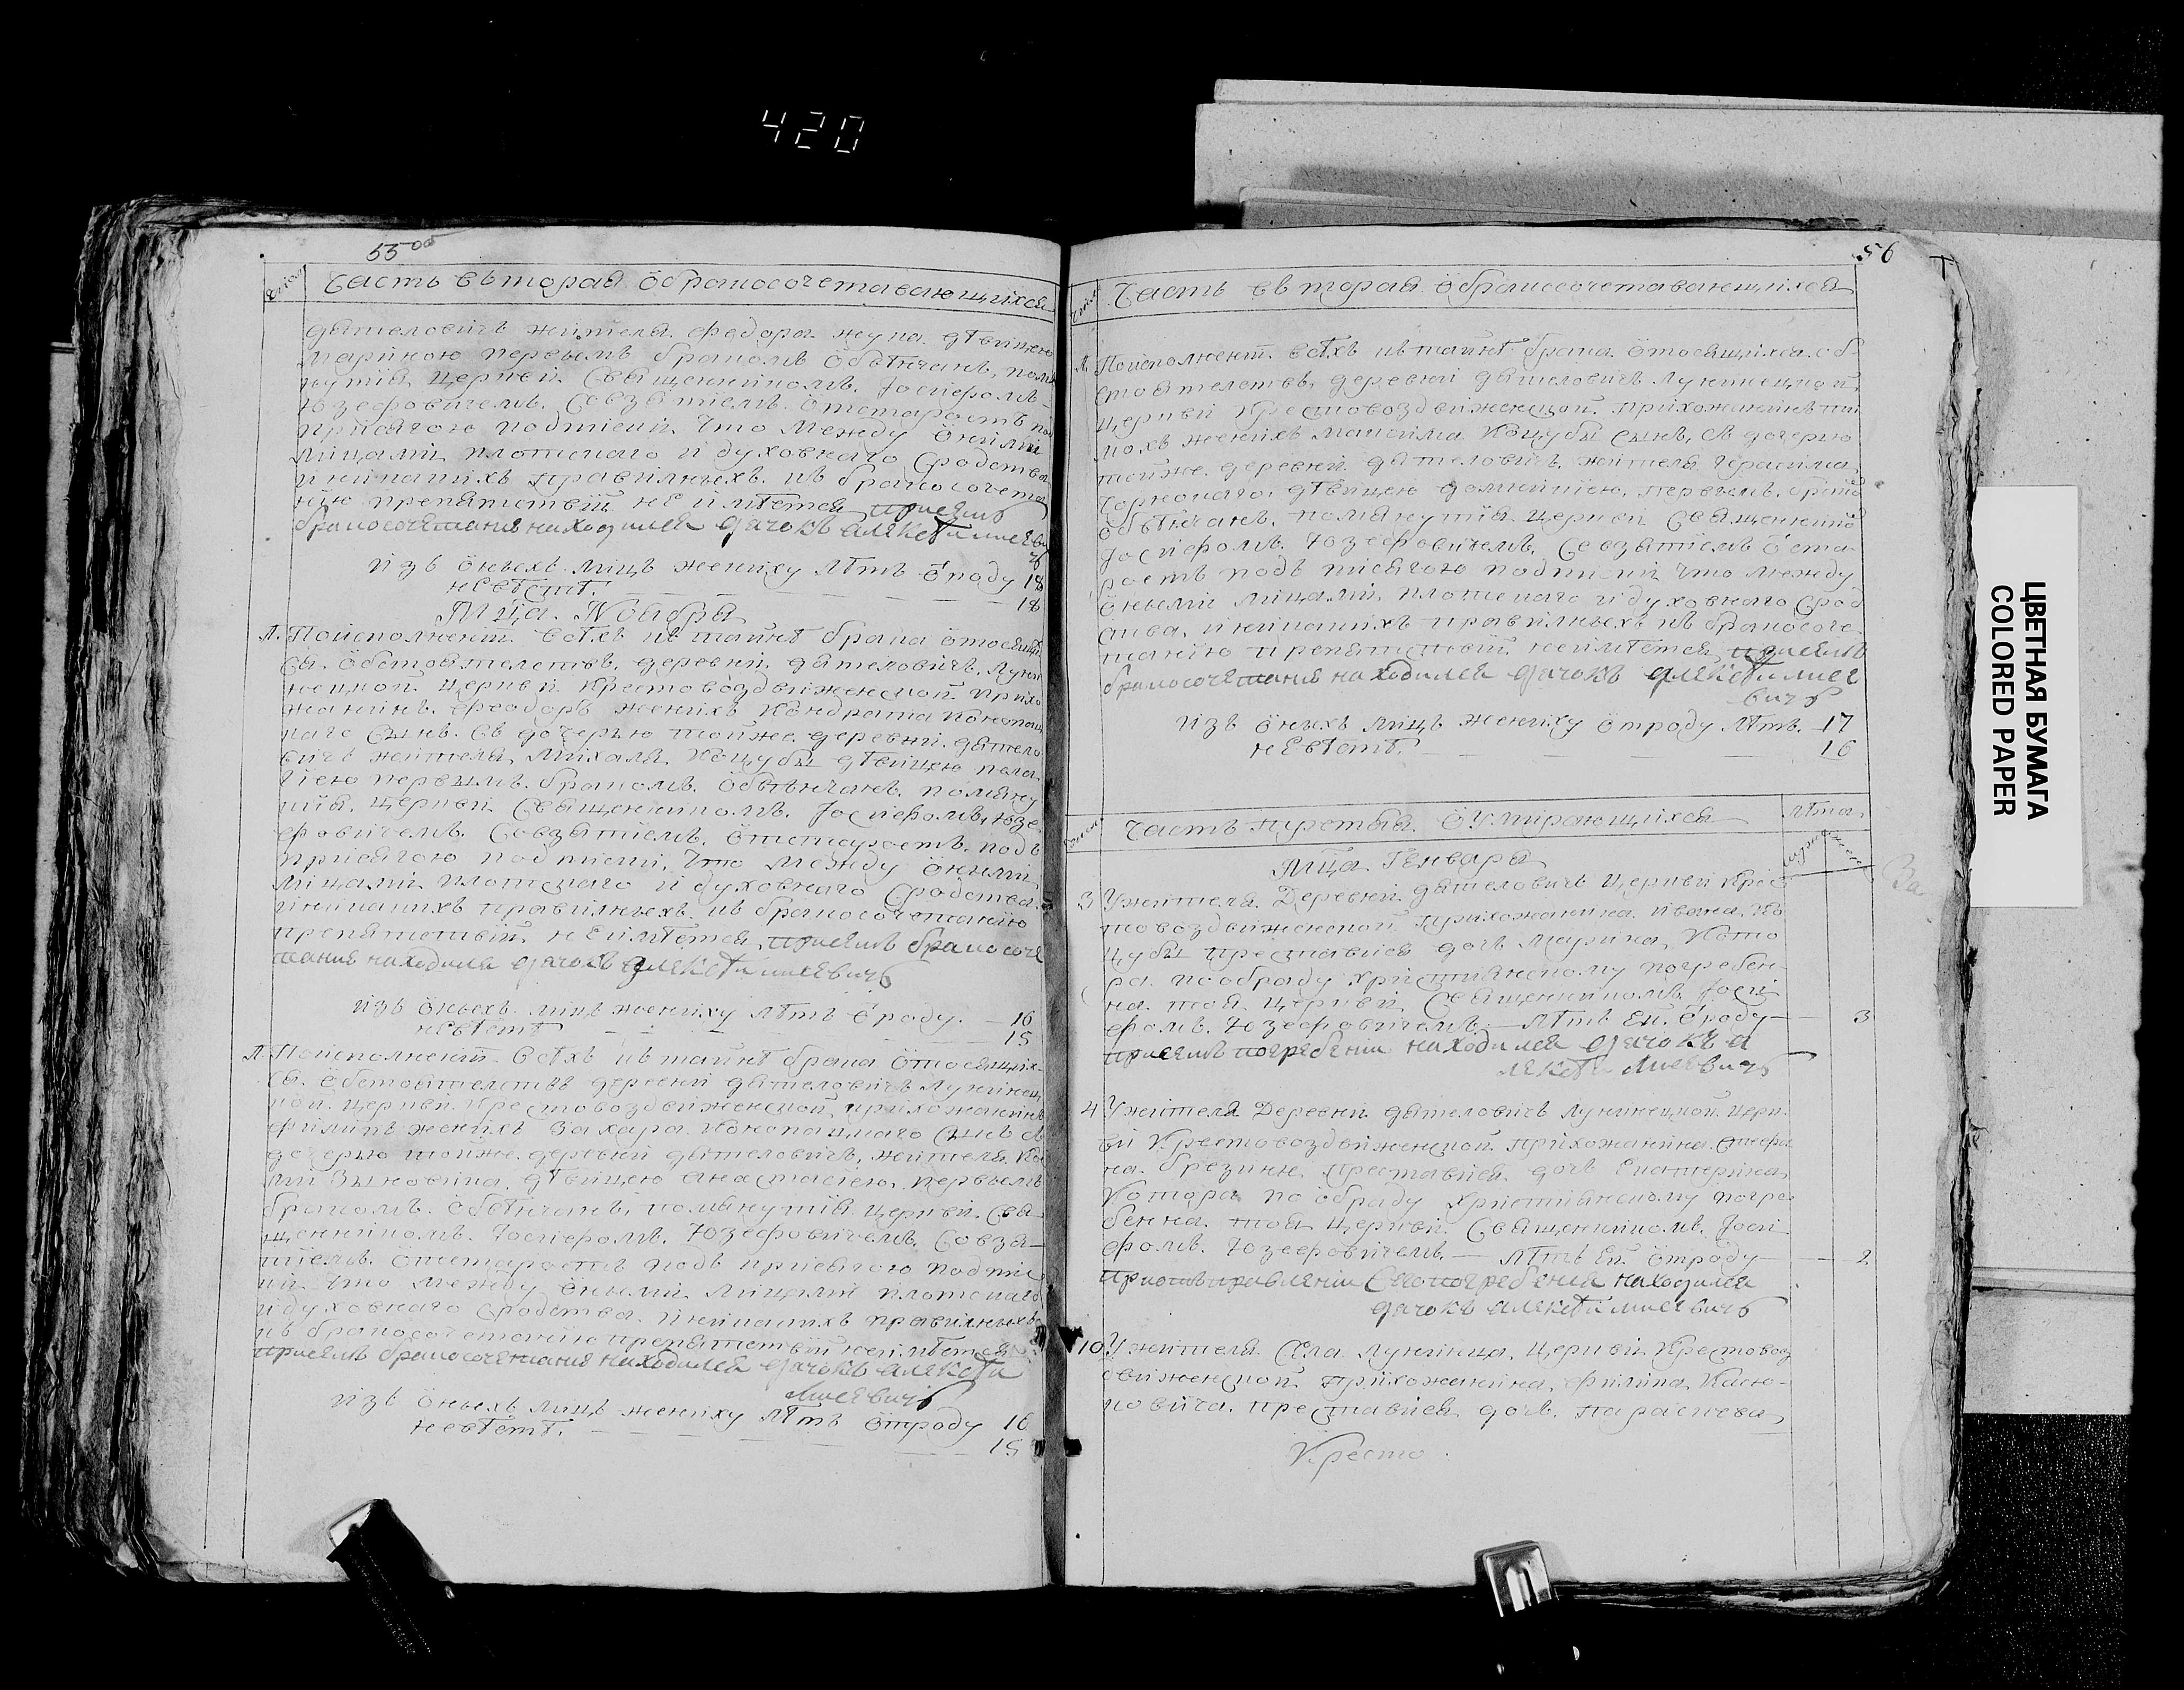 420
55 об
Число
Часть вьторая о бракосочетавающихся
дятеловичъ жителя Федора Жука девицею
Марйною первымъ бракомъ обвенчанъ, помя
нутїя церкви Священникомъ Іосифомъ
Юзефовичемъ. Совзятіемъ отстаростъ под
присягою подписки. что между оними
лицами плотскаго и духовнаго сродства
и никакихъ правилныхъ къ бракосочета
нїю препятствїй не имѣется присемъ
бракосочетания находился дячокъ Алексѣй Мисеви
чъ
изъ оныхъ лицъ жениху лѣтъ ѿ роду 18
невѣстѣ. 18
Мца. Ноября
Л. Поисполненїи всѣхъ къ тайнѣ брака относящих
ся обстоятелствъ, деревни дятеловичъ, Лунин
нецкой Церкви Крестовоздвиженской прихо
жанинъ Феодоръ женихъ Кондрата Конопац
каго сынъ. съ дочерью тойже деревни дятело
вичъ жителя Михаля Коцубы девицею Пела
гїею первымъ бракомъ обвѣнчанъ. помяну
тїя. Церкви Священникомъ Іосифомъ, Юзе
фовичемъ. Совзятіемъ. отстаростъ. подъ
присягою подписки, что между оними
лицами плотскаго и духовнаго сродства
иникакихъ правилныхъ къ бракосочетанїю
препятствїй не имѣется присемъ бракосоче
тания находился дячокъ Алексѣй Мисевичъ
изъ оныхъ лицъ жениху лѣтъ ѿ роду 16
невѣстѣ 15
Л. Поисполненїи всѣхъ къ тайнѣ брака относящих
ся. обстоятелствъ деревни дятеловичъ Лунинец
кой Церкви Крестовоздвиженской прихожанинъ
Филипъ женихъ Захара Конопацкаго сынъ съ
дочерью тойже деревни дятеловичъ, жителя
девицею Анастасїею, первымъ
бракомъ. обвѣнчанъ, помянутїя церкви. Свя
щенникомъ. Іосифомъ. Юзефовичемъ. Совзя
тіемъ. отстаростъ подъ присягою подпис
ки что между оными лицами плотскаго
и духовнаго сродства. иникакихъ правилныхъ
къ бракосочетанїю препятствїй неимѣется
присемъ бракосочетания находился дячокъ Алексѣй
Мисевичъ
изъ оныхъ лицъ жениху лѣтъ ѿроду 16
невѣстѣ. 15
56
Число
Часть вьторая о бракосочетавающихся
Л. Поисполненїи всѣхъ къ тайнѣ брака относящихся об
стоятелствъ, деревни дятеловичъ Лунинецкой
Церкви Крестовоздвиженской прихожанинъ
женихъ Максима Коцубы сынъ, съ дочерию
тойже деревни дятеловичъ, жителя Герасима
дѣвицею Домникїею, первымъ. бракомъ
обвѣнчанъ, помянутїя Церкви Священником
Іосифомъ. Юзефовичемъ. Совзятіемъ ѿ ста
ростъ подъ присягою подписки что между
оными лицами плотскаго и духовнаго срод
ства, иникакихъ правилныхъ къ бракосоче
танїю препятствїй неимѣется присемъ
бракосочетания находился дячокъ Алексѣй Мисе
вичъ
изъ оныхъ лицъ жениху ѿ роду лѣтъ. 17
невѣстѣ. 16
Число
часть третья о умирающихся
лѣта
Мца Генваря
3 Ужителя Деревни дятеловичъ Церкви Крес
товоздвиженской прихожанина Ивана Ко
цубы преставися дочь Марина, Кото
ра. пообряду христїянскому погребен
на тоя Церкви Священникомъ Іоси
фомъ. Юзефовичемъ. — лѣтъ ей ѿроду — 3
присемъ погребении находился дячокъ А
лексѣй Мисевичъ
4 Ужителя Деревни дятеловичъ Лунинецкой Церк
ви Крестовоздвиженской прихожанина Стефа
на Брезинки преставися дочь Екатерина,
Котора по обряду христїянскому погре
бенна тоя Церкви Священникомъ. Іоси
фомъ. Юзефовичемъ. — лѣтъ ей ѿроду — 2
приотправлении погребения находился
дячокъ Алексѣй Мисевичъ
10 Ужителя Села Лунинца, Церкви Крестовоз
движенской прихожанина, Филипа Касю
ковича. преставися дочь. Параскева,
Кресто
ЦВЕТНАЯ БУМАГА
COLORED PAPER